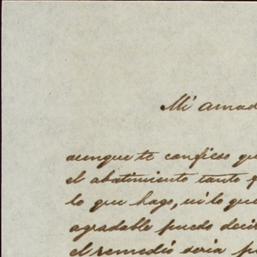 Mi amad
aunque te confieso qu
el abatimiento tanto f
lo que hago, ni lo que
agradable puedo decir
el remedio seria p